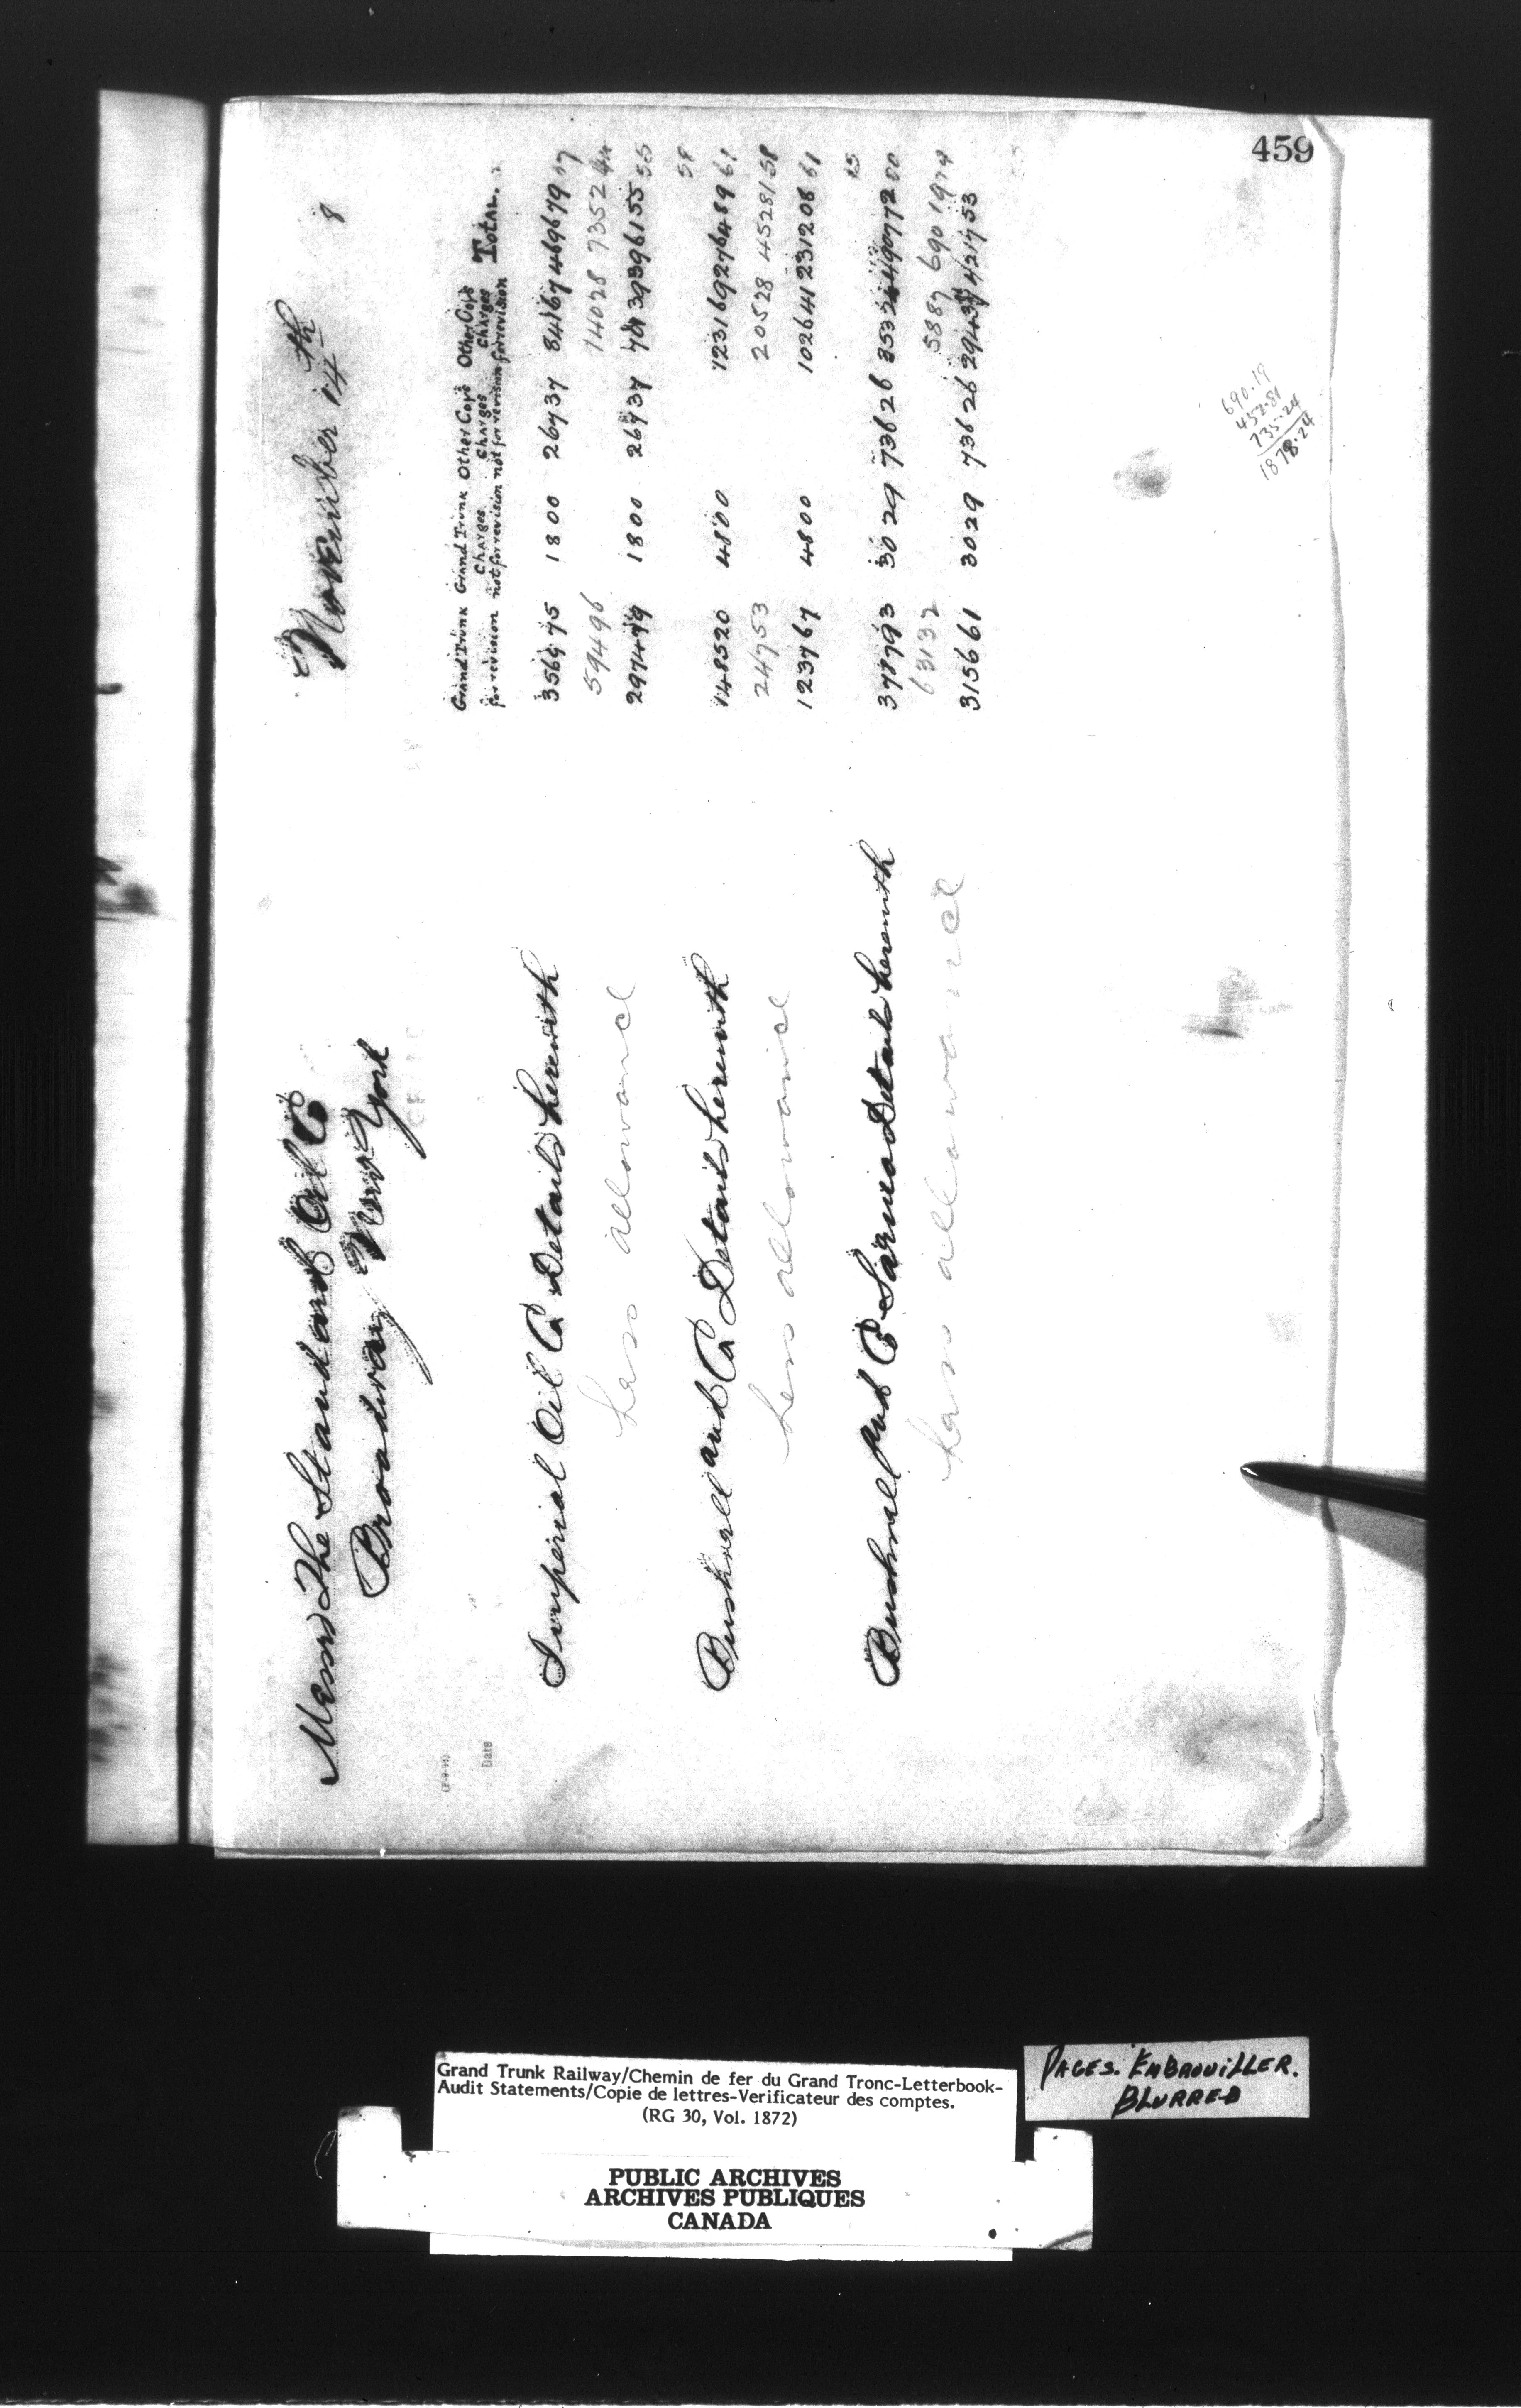 459
Messrs The Standard Oil Co November 14th 8
Broadway New York
Grand Trunk Grand Trunk Other Coys Other Coys TOTAL.
Charges Charges Charges
for revision not for revision not for revision for revision
Date
Imperial Oil Co Details herewith 3569 75 18 00 267 37 841 67 4696 79
Less allowance 594 96 140 28 735 24
2974 79 18 00 267 37 701 39 3961 55
Bushnell and Co Details herewith 1485 20 48 00 1231 69 2764 89
Less allowance 247 53 205 28 452 81
1237 67 48 00 1026 41 2312 08
Bushnell and Co Sarnia Details herewith 3787 93 30 29 736 26 353 24 4907 72
Less allowance 631 32 58 87 690 19
3156 61 30 29 736 26 294 37 4217 53
690.19
452.81
735.24
1878.24
Grand Trunk Railway/Chemin de fer du Grand Tronc-Letterbook-
Audit Statements/Copie de lettres-Verificateur des comptes.
(RG 30, Vol. 1872)
PAGES. EMBROUILLER.
BLURRED
PUBLIC ARCHIVES
ARCHIVES PUBLIQUES
CANADA